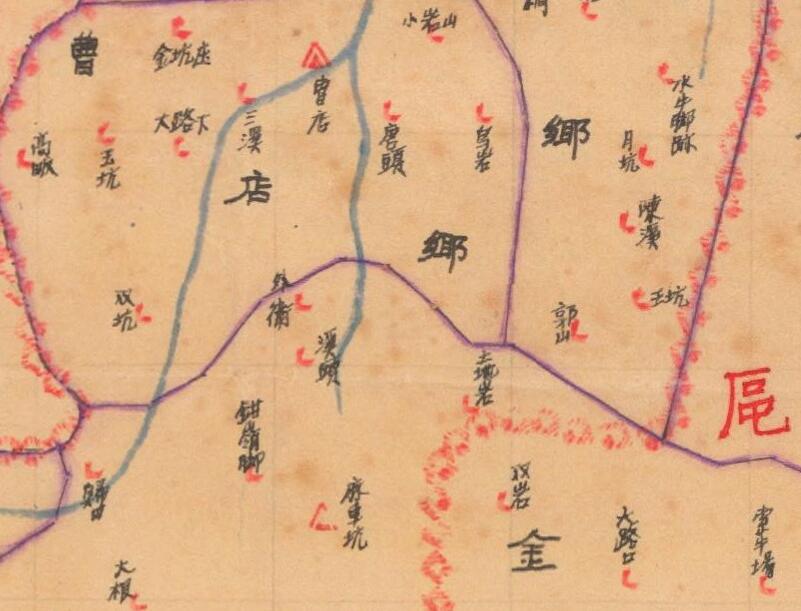 小岩山
曹
金坑座
曹店
水牛脚跡
大路下
三溪
唐頭
烏岩
鄉
月坑
玉坑
店
陳溪
鄉
双坑
王坑
郭山
溪頭
土地岩
区
鉗嶺脚
双岩
麻車坑
大路口
金
大根